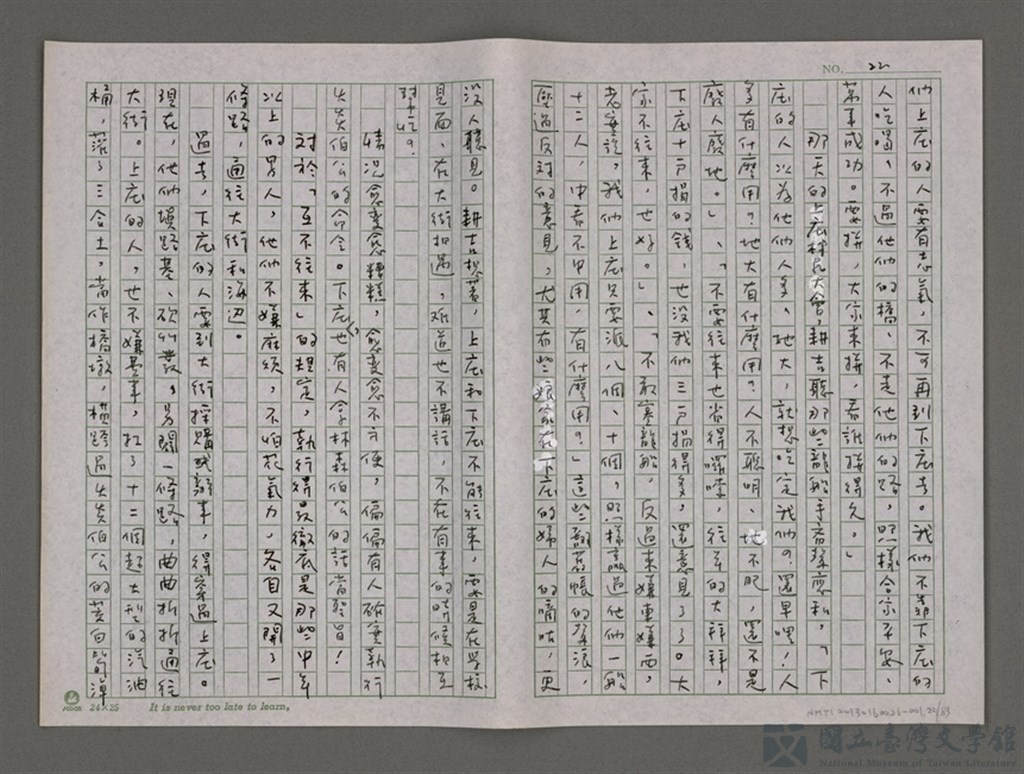 NO. 22
們上庄的人要有志氣，不可再到下庄去。我們不靠下庄的
人吃喝、不過他們的橋、不走他們的路，照樣合家平安、
萬事成功。要拼，大家來拼，看誰拼得久。」
那天的上庄村民大會，耕吉聽那些龍船手
下
庄的人以為他們人多、地大，就想吃定我們？還早哩！人
多有什麼用？地大有什麼用？人不聰明、地不肥，還不是
廢人廢地。」、「不要往來也省得囉嗦，往年的大拜拜，
下庄十戶捐的錢，也沒我們三戶捐得多，還意見了了。大
家不往來，也好。」、「不敢賽龍船，反過來嫌東嫌西，
老實說，我們上庄只要派八個、十個，照樣贏過他們一船
十二人，中看不中用，有什麼用？」這些翻舊帳的聲浪，
壓過反對的意見，尤其有些娘家在下庄的婦人的嘀咕，更
沒人聽見。耕吉想著，上庄和下庄不能往來，要是在學校
見面、在大街相遇，難道也不講話，不在有事的時候相互
對忙？
情況愈變愈糟糕，愈變愈不方便，偏偏有人確實執行
火炎伯公的命令。下庄也有人拿林森伯公的話當聖旨！
對於「互不往來」的規定，執行得最徹底是那些中年
以上的男人，他們不嫌麻煩，不怕花氣力，各自又開了一
條路，通往大街和海邊。
過去，下庄的人要到大街採購或辦事，得穿過上庄。
現在，他們填路基、砍竹叢，另開一條路，曲曲折折通往
大街。上庄的人，也不嫌費事，扛了十二個超大型的汽油
桶，落了三台土，當作橋墩，橫跨過火炎伯公的茭白筍潭
24×25
It is never too late to learn,
國立臺灣文學館
National Museum of Taiwan Literature